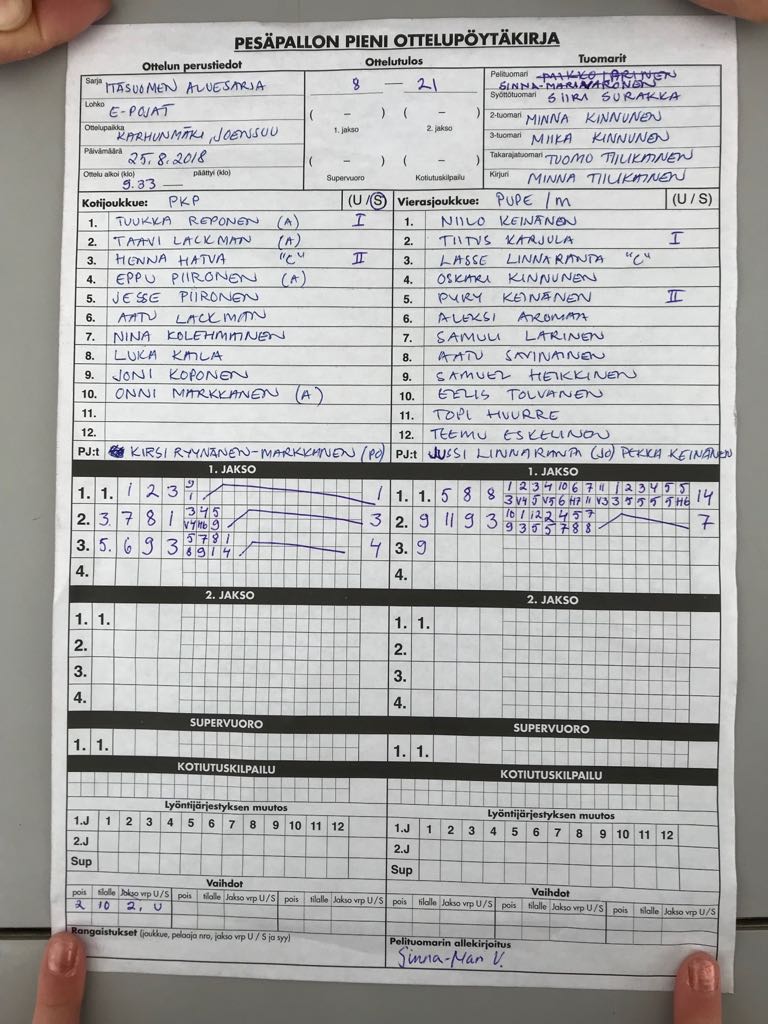 PESÄPALLON PIENI OTTELUPÖYTÄKIRJA
Ottelun perustiedot
Sarja ITÄSUOMEN ALUESARJA
Lohko E-POJAT
Ottelupaikka KARHUNMÄKI, JOENSUU
Päivämäärä 25.8.2018
Ottelu alkoi (klo) päättyi (klo)
9.33 —
Ottelutulos
8 — 21
( – ) ( – )
1. jakso 2. jakso
( – ) ( – )
Supervuoro Kotiutuskilpailu
Tuomarit
Pelituomari
Syöttötuomari SIIRI SURAKKA
2-tuomari MINNA KINNUNEN
3-tuomari MIIKA KINNUNEN
Takarajatuomari TUOMO TIILIKAINEN
Kirjuri MINNA TIILIKAINEN
Kotijoukkue: PKP (U/S)
1. TUUKKA REPONEN (A) I
2. TAAVI LACKMAN (A)
3. HENNA HATVA "C" II
4. EPPU PIIRONEN (A)
5. JESSE PIIRONEN
6. AATU LACKMAN
7. NINA KOLEHMAINEN
8. LUKA KAILA
9. JONI KOPONEN
10. ONNI MARKKANEN (A)
11.
12.
PJ:t KIRSI RYYNÄNEN-MARKKANEN (PO)
Vierasjoukkue: PUPE /m (U / S)
1. NIILO KEINÄNEN
2. TIITUS KARJULA I
3. LASSE LINNARANTA "C"
4. OSKARI KINNUNEN
5. PYRY KEINÄNEN II
6. ALEKSI AROMAA
7. SAMULI LARINEN
8. AATU SAVINAINEN
9. SAMUEL HEIKKINEN
10. EELIS TOLVANEN
11. TOPI HUURRE
12. TEEMU ESKELINEN
PJ:t JUSSI LINNARANTA (JO) PEKKA KEINÄNEN
1. JAKSO
1. 1. 1 2 3 9 1
1
2. 3. 7 8 1 3 4 5
V4 H6 9 3
3. 5. 6 9 3 5 7 8 1
8 9 1 4 4
4.
1. JAKSO
1. 1. 5 8 8 1 2 3 4 10 6 7 11 1 2 3 4 5 5
3 V4 5 V5 6 H7 11 V3 3 5 5 5 5 H6 14
2. 9 11 9 3 10 1 12 2 4 5 7
9 3 5 5 7 8 8 7
3. 9
4.
2. JAKSO
1. 1.
2.
3.
4.
2. JAKSO
1. 1.
2.
3.
4.
SUPERVUORO
1. 1.
SUPERVUORO
1. 1.
KOTIUTUSKILPAILU
KOTIUTUSKILPAILU
Lyöntijärjestyksen muutos
1.J 1 2 3 4 5 6 7 8 9 10 11 12
2.J
Sup
Lyöntijärjestyksen muutos
1.J 1 2 3 4 5 6 7 8 9 10 11 12
2.J
Sup
Vaihdot
pois tilalle Jakso vrp U/S pois tilalle Jakso vrp U/S pois tilalle Jakso vrp U/S
2 10 2. U
Vaihdot
pois tilalle Jakso vrp U/S pois tilalle Jakso vrp U/S pois tilalle Jakso vrp U/S
Rangaistukset (joukkue, pelaaja nro, jakso vrp U / S ja syy)
Pelituomarin allekirjoitus
Sinna-Mari V.